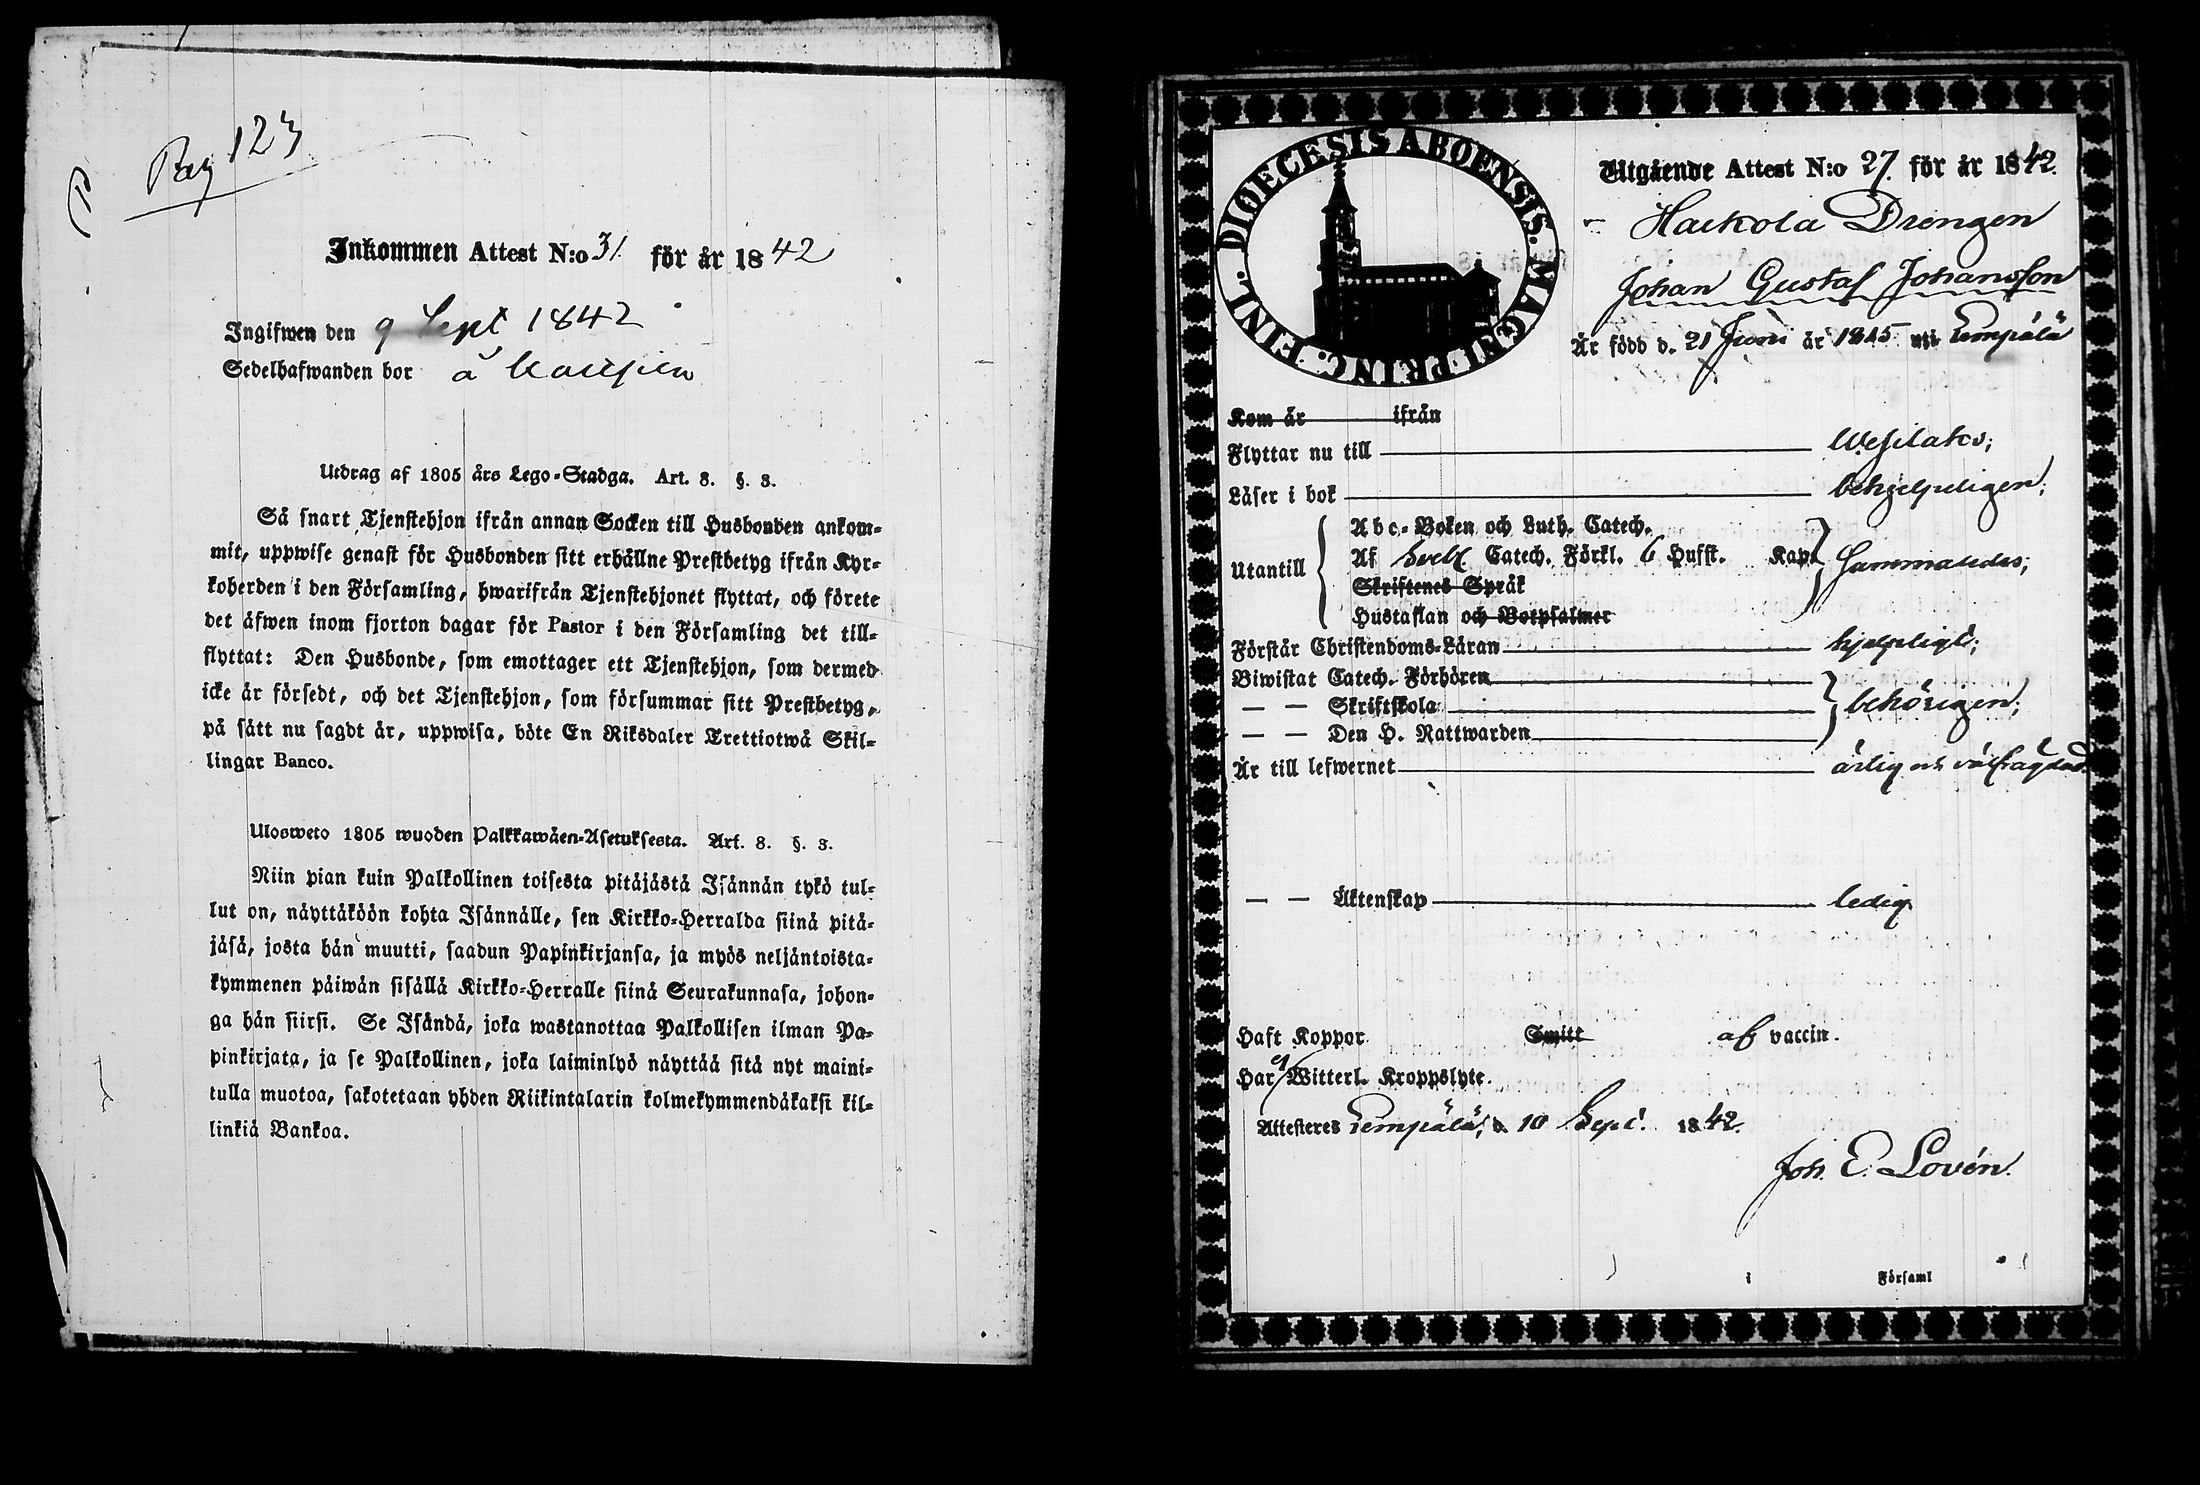 Pag 123
Inkommen Attest N:o 31. för år 1842
Ingifwen den 9 Sept 1842
Sedelhafwanden bor å
Utdrag af 1805 års Lego-Stadga. Art. 8. §. 3.
Så snart Tjenstehjon ifrån annan Socken till Husbonden ankom-
mit, uppwise genast för Husbonden sitt erhållne Prestbetyg ifrån Kyr-
koherden i den Församling, hwarifrån Tjenstehjonet flyttat, och förete
det äfwen inom fjorton dagar för Pastor i den Församling det till-
flyttat: Den Husbonde, som emottager ett Tjenstehjon, som dermed
icke är försedt, och det Tjenstehjon, som försummar sitt Prestbetyg,
på sätt nu sagdt är, uppwisa, böte En Riksdaler Trettiotwå Skil-
lingar Banco.
Ulosweto 1805 wuoden Palkkawäen-Asetuksesta. Art. 8. §. 3.
Niin pian kuin Palkollinen toisesta pitäjästä Isännän tykö tul-
lut on, näyttäköön kohta Isännälle, sen Kirkko-Herralda siinä pitä-
jäsä, josta hän muutti, saadun Papinkirjansa, ja myös neljäntoista-
kymmenen päiwän sisällä Kirkko-Herralle siinä Seurakunnasa, johon-
ga hän siirsi. Se Isändä, joka wastanottaa Palkollisen ilman Pa-
pinkirjata, ja se Palkollinen, joka laiminlyö näyttää sitä nyt maini-
tulla muotoa, sakotetaan yhden Riikintalarin kolmekymmendäkaksi kil-
linkiä Bankoa.
FINL. DIOECESIS ABOENSIS. MAGNI PRINC.
Utgående Attest N:o 27. för år 1842.
Haikola Drengen
Johan Gustaf Johansson
Är född d. 21 Juni år 1825 uti Lempälä
Kom år ifrån
Flyttar nu till Wesilaks;
Läser i bok behjelpeligen;
Utantill
Abc-Boken och Luth. Catech.
Af Sveb. Catech. Förkl. 6 Hufst. Kap. sammaledes;
Skriftenes Språk
Hustaflan och Botpsalmer
Förstår Christendoms-Läran hjelpeligt;
Biwistat Catech. Förhören
— — Skriftskola behörigen;
— — Den H. Nattwarden
Är till lefwernet ärlig och välfrägdad.
— — Äktenskap ledig
Haft Koppor Smitt af vaccin.
Har ej Witterl. Kroppslyte.
Attesteres Lempälä, d. 10 Sept. 1842.
Joh. E. Lovén.
i Församl